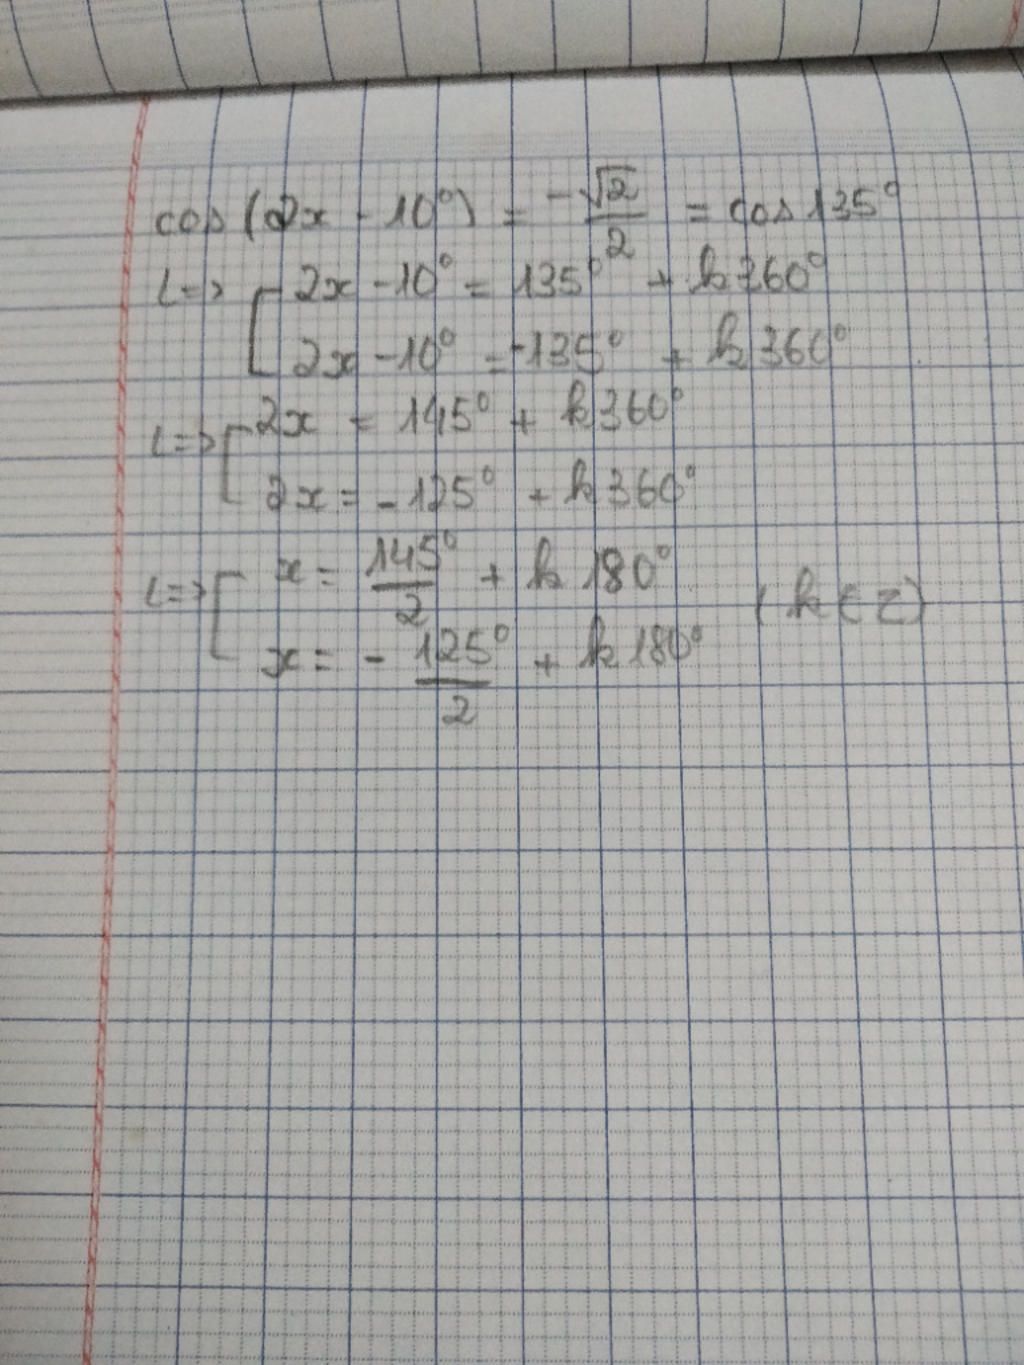 cos (2x - 10°) = -√2/2 = cos 135°
<=> [ 2x - 10° = 135° + k360°
2x - 10° = -135° + k360°
<=> [ 2x = 145° + k360°
2x = -125° + k360°
<=> [ x = 145°/2 + k180°
x = -125°/2 + k180° (k ∈ Z)